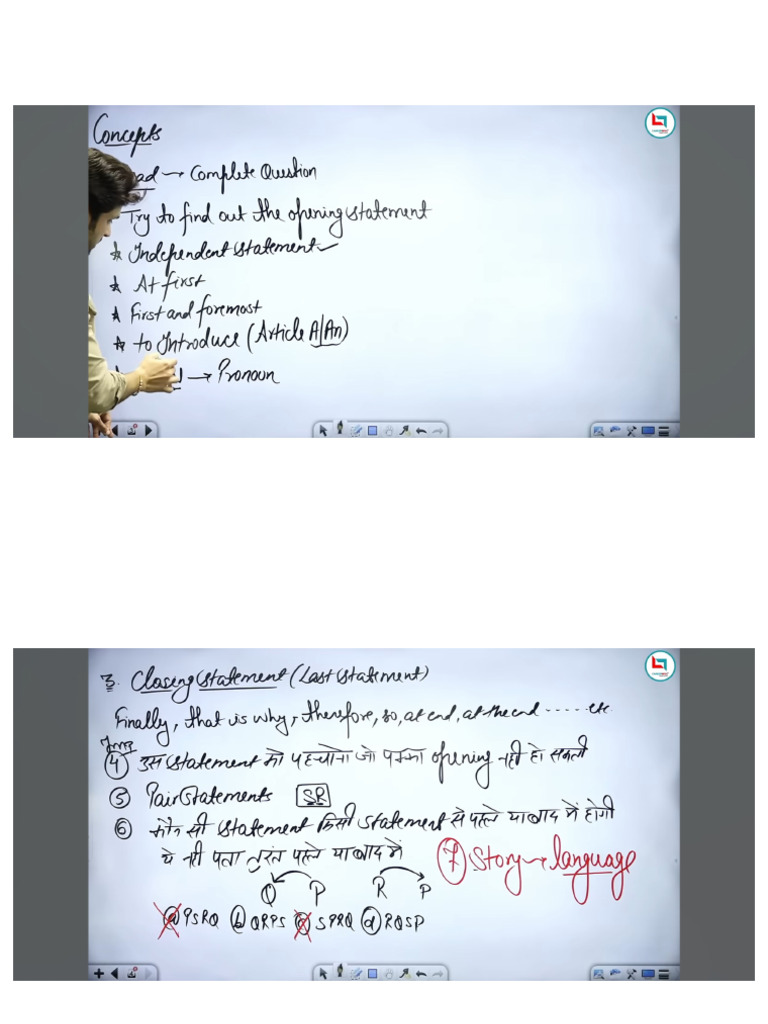 Concepts
→ Complete Question
Try to find out the opening statement
* Independent statement ✓
* At first
* First and foremost
* to Introduce (Article A/An)
→ Pronoun
3. Closing Statement (Last statement)
Finally, that is why, therefore, so, at end, at the end ..... etc.
Imp
④ उस statement को पहचानो जो पक्का opening नही हो सकती
⑤ Pair Statements SR
⑥ कौन सी statement किसी statement से पहले या बाद में होगी
ये नही पता तुरंत पहले या बाद में
⑦ Story → language
Q P R P
ⓐ PSRQ ⓑ QRPS ⓒ SPRQ ⓓ RQSP